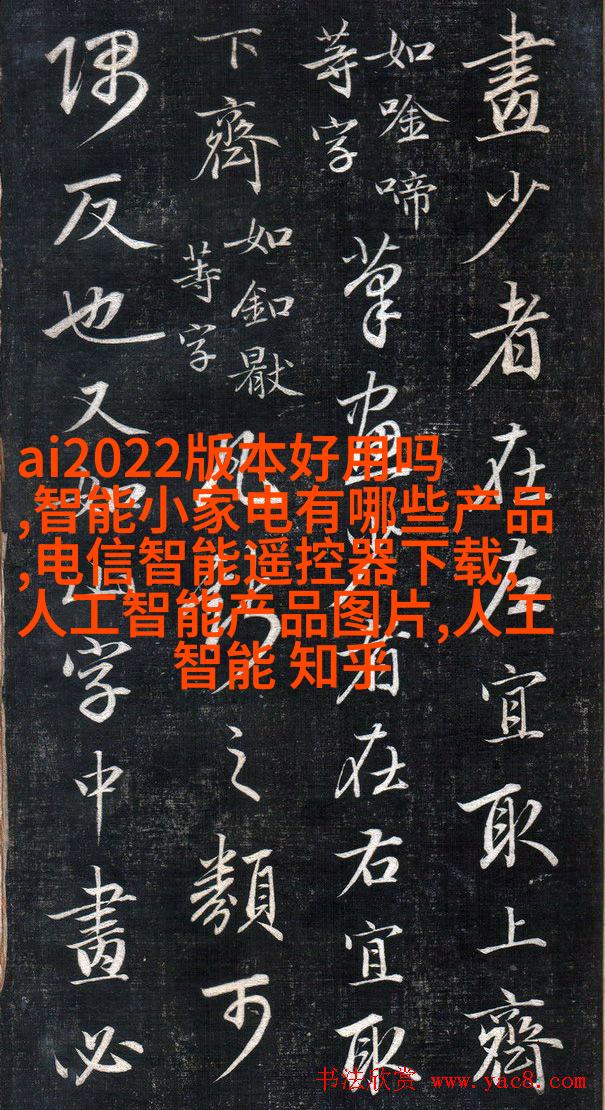 畫少者在左宜取上齊
如唫啼
等字
筆畫者在右宜取
下齊
如釦
等字
之類可
隅反也又如山字中畫必
ai2022版本好用吗
,智能小家电有哪些产品
,电信智能遥控器下载,
人工智能产品图片,人工
智能 知乎
书法欣赏 www.yac8.com